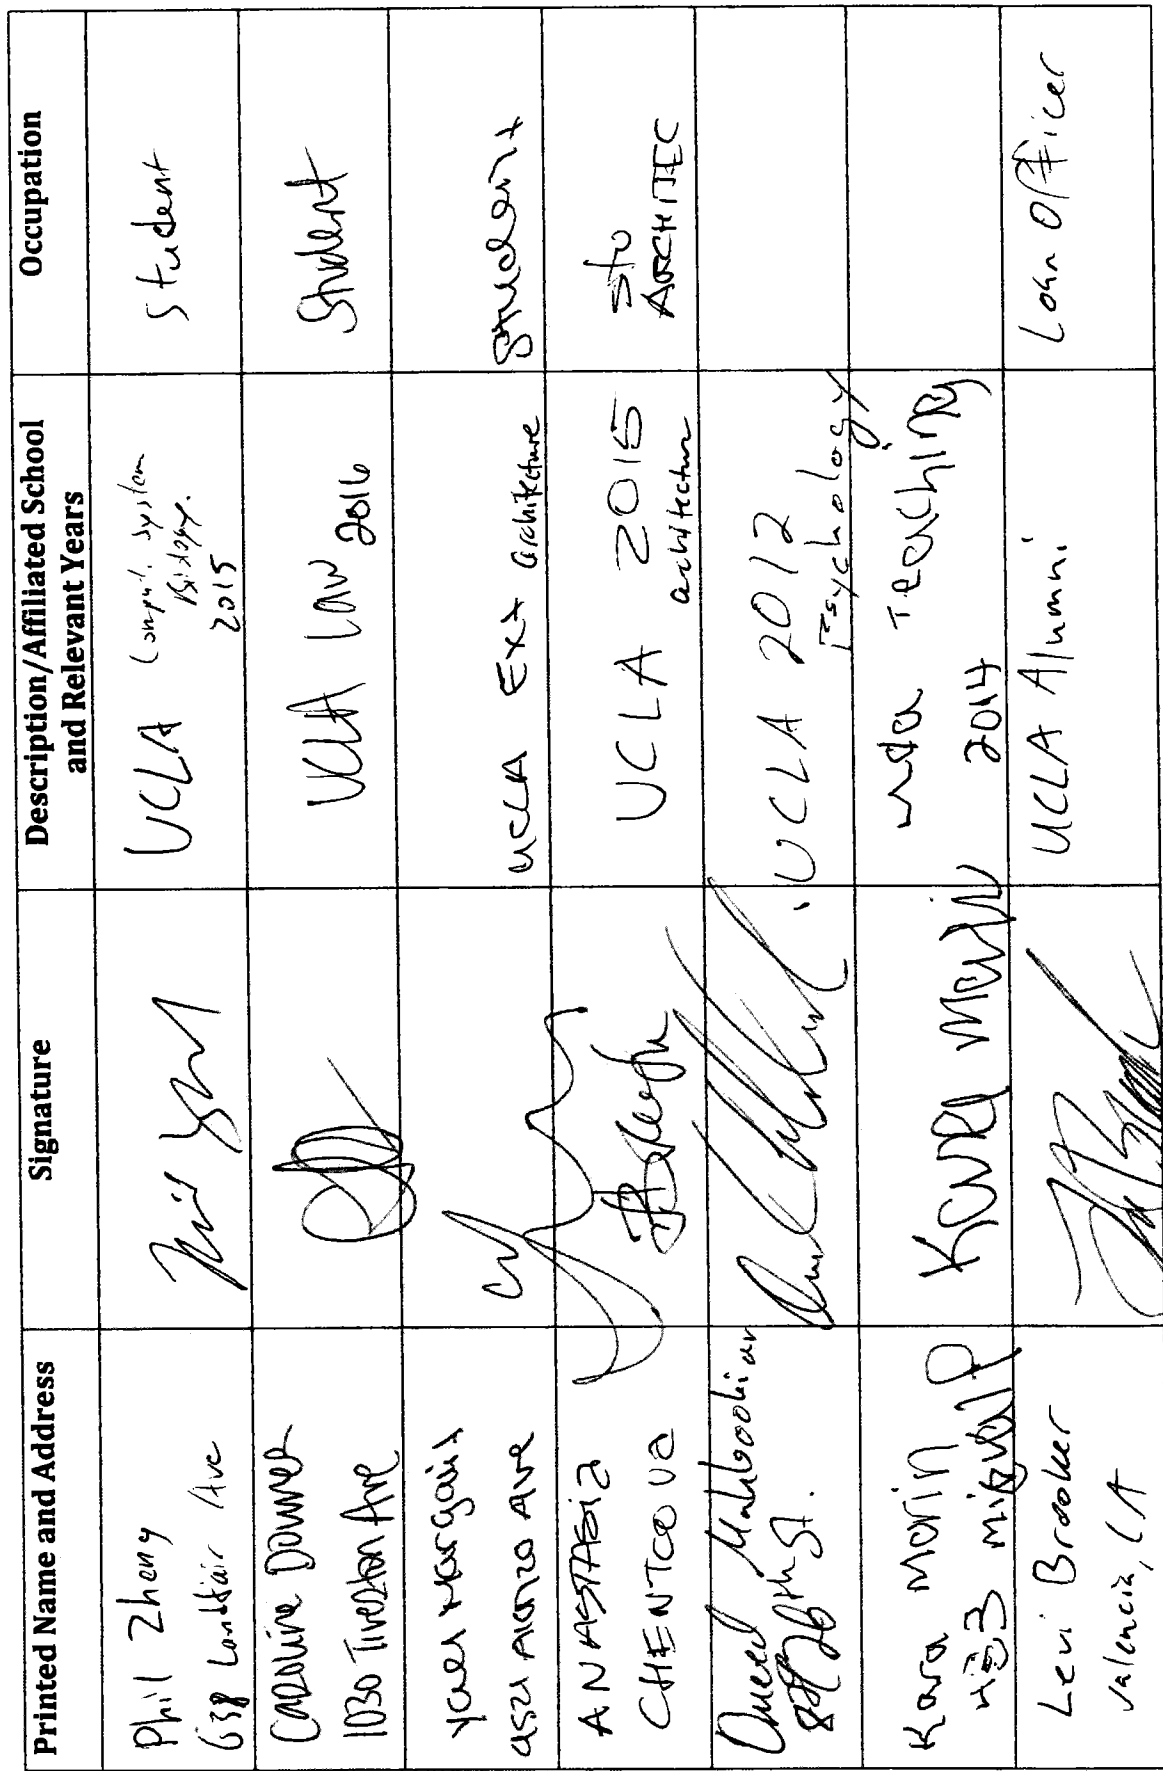 Printed Name and Address
Signature
Description/Affiliated School
and Relevant Years
Occupation
Phil Zheng
638 Landfair Ave
UCLA
Comput. System
Biology.
2015
Student
Caroline Dower
1030 Tiverton Ave
UCLA Law
2016
Student
Yael Margalit
Ave
UCLA Ext architecture
Student
ANASTASIA
CHENTCOVA
UCLA 2015
architecture
STU
ARCHITEC
Omeed Mahboobian
26th St.
UCLA 2012
Psychology
Kara Morin
Kara Morin
Teaching
2014
Levi Brooker
Valencia, CA
UCLA Alumni
Loan Officer